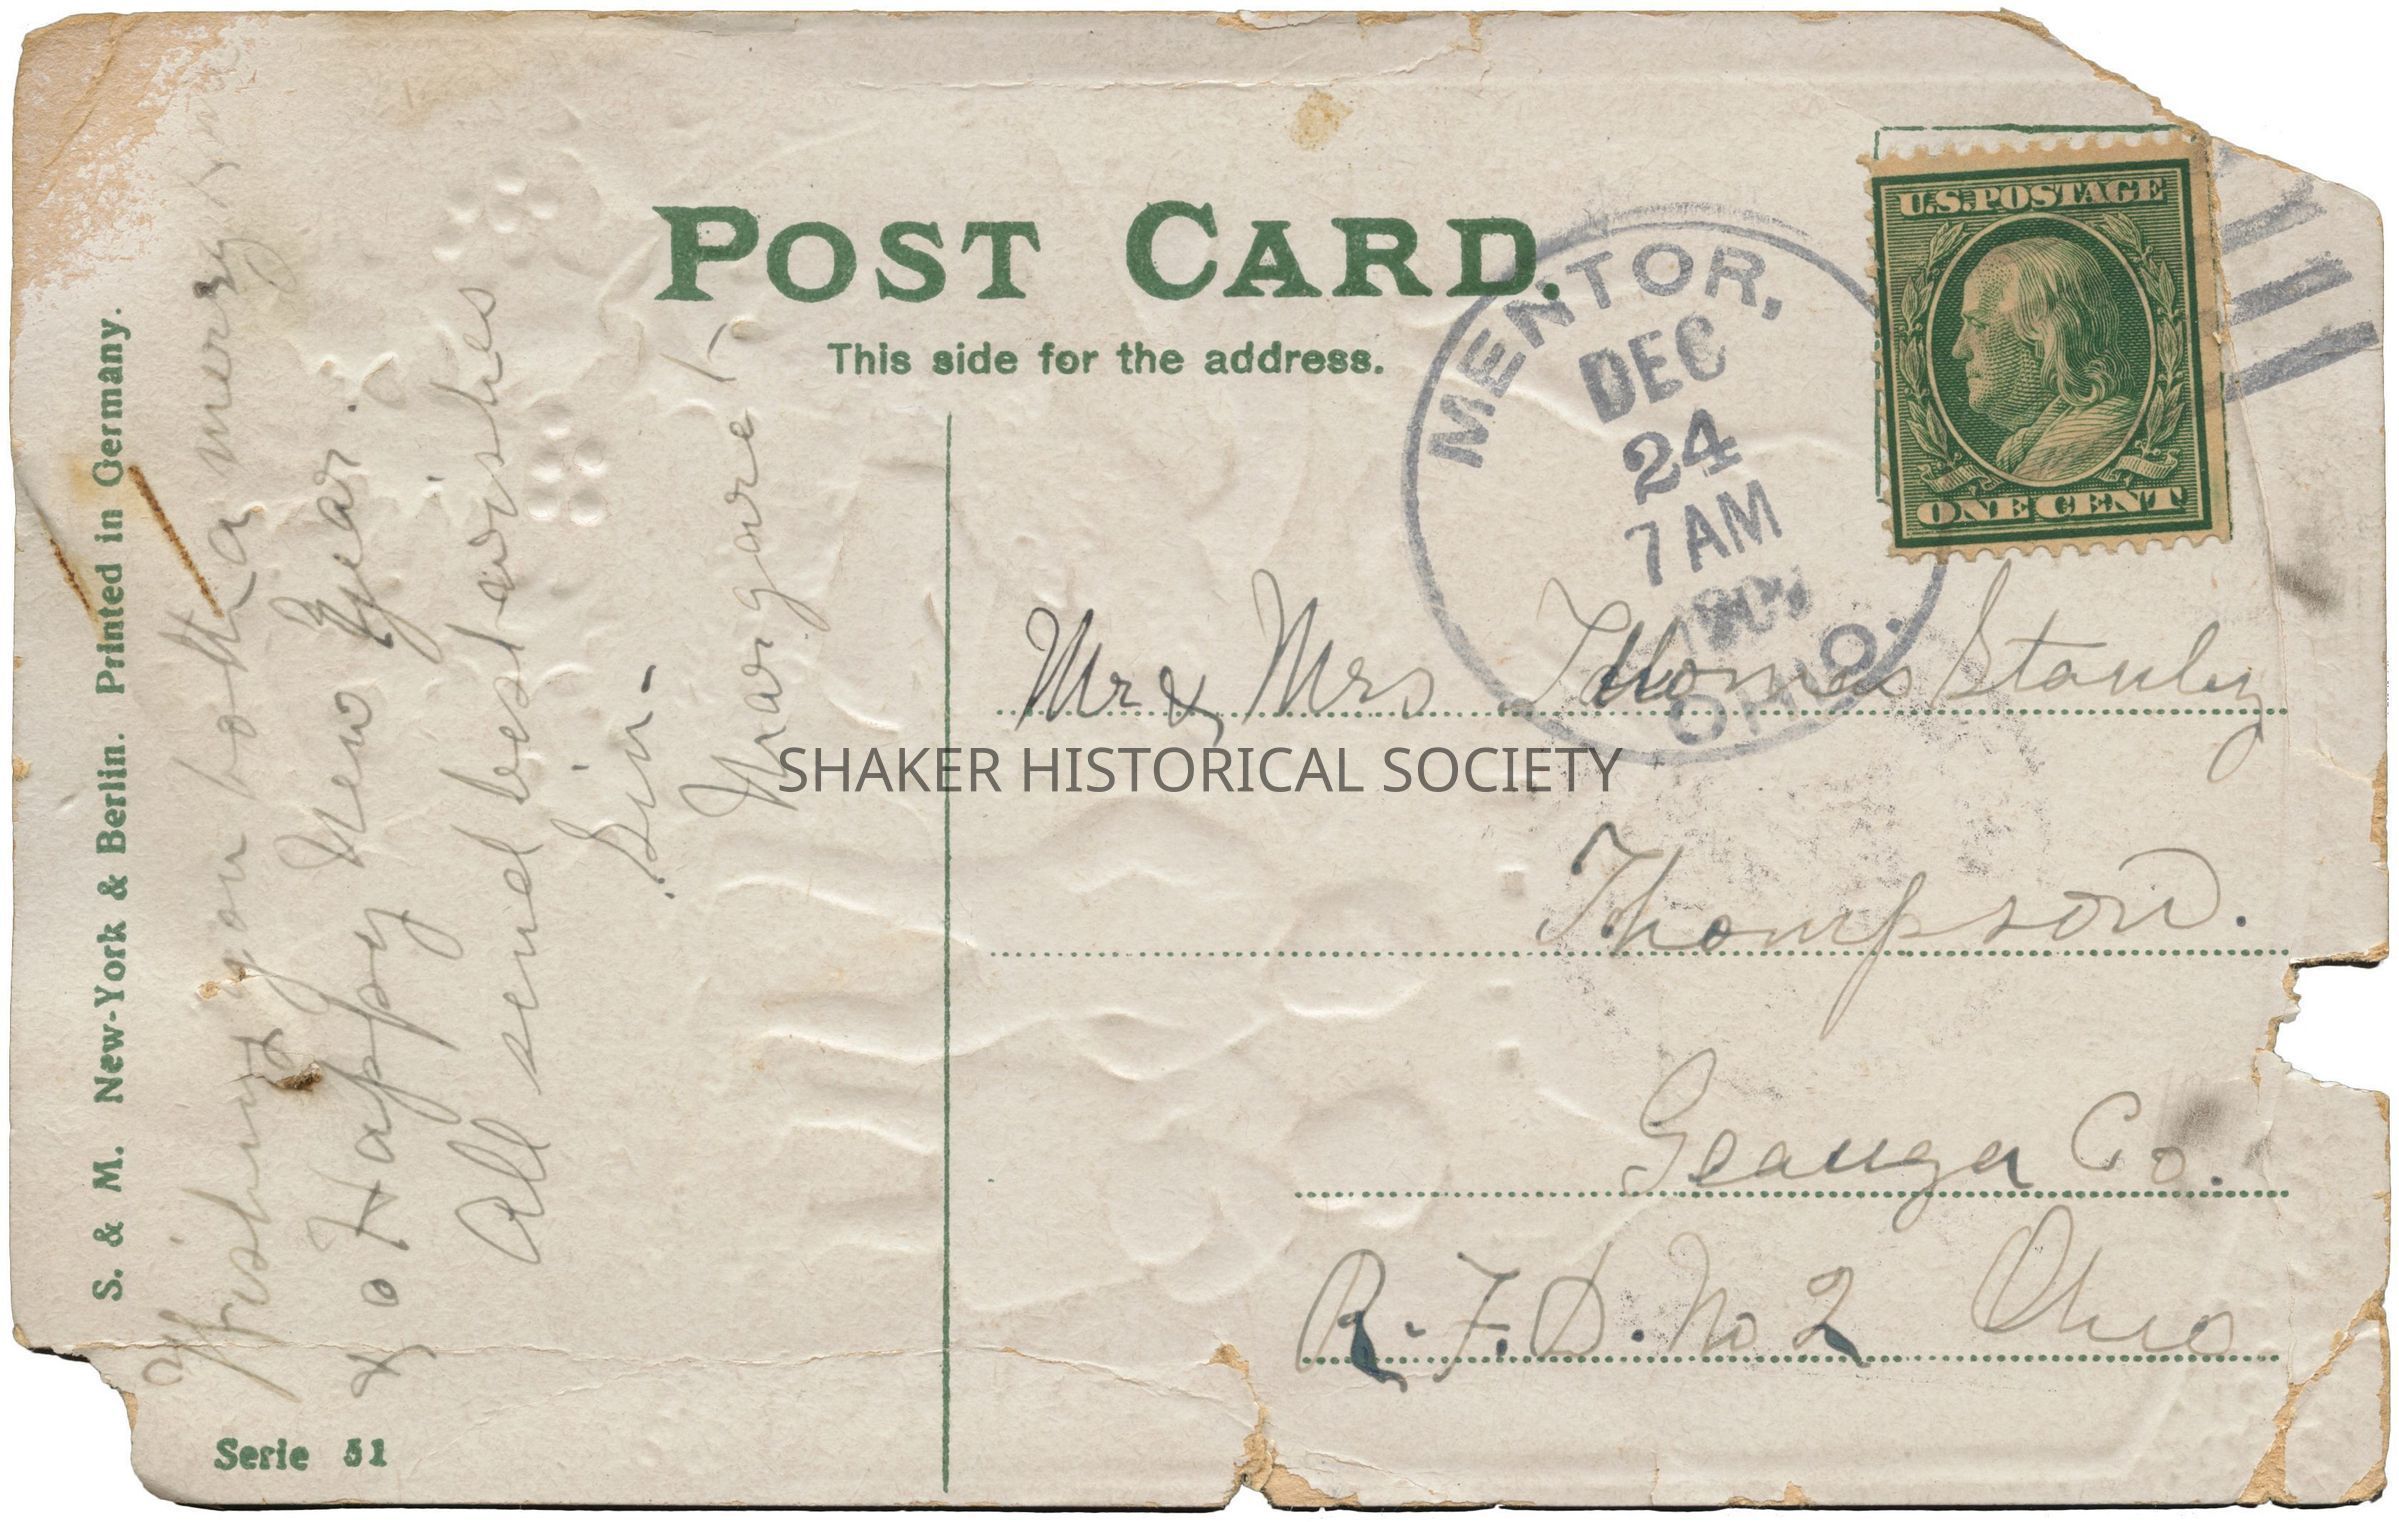 POST CARD.
This side for the address.
MENTOR,
DEC
24
7 AM
OHIO.
U.S. POSTAGE
ONE CENT
S. & M. New-York & Berlin. Printed in Germany.
Wishing you both a merry
& a Happy New Year.
All send best wishes
Sin-
Margaret
Mr & Mrs Thomas Stanley
Thompson.
Geauga Co.
R.F.D. No 2 Ohio
Serie 51
SHAKER HISTORICAL SOCIETY